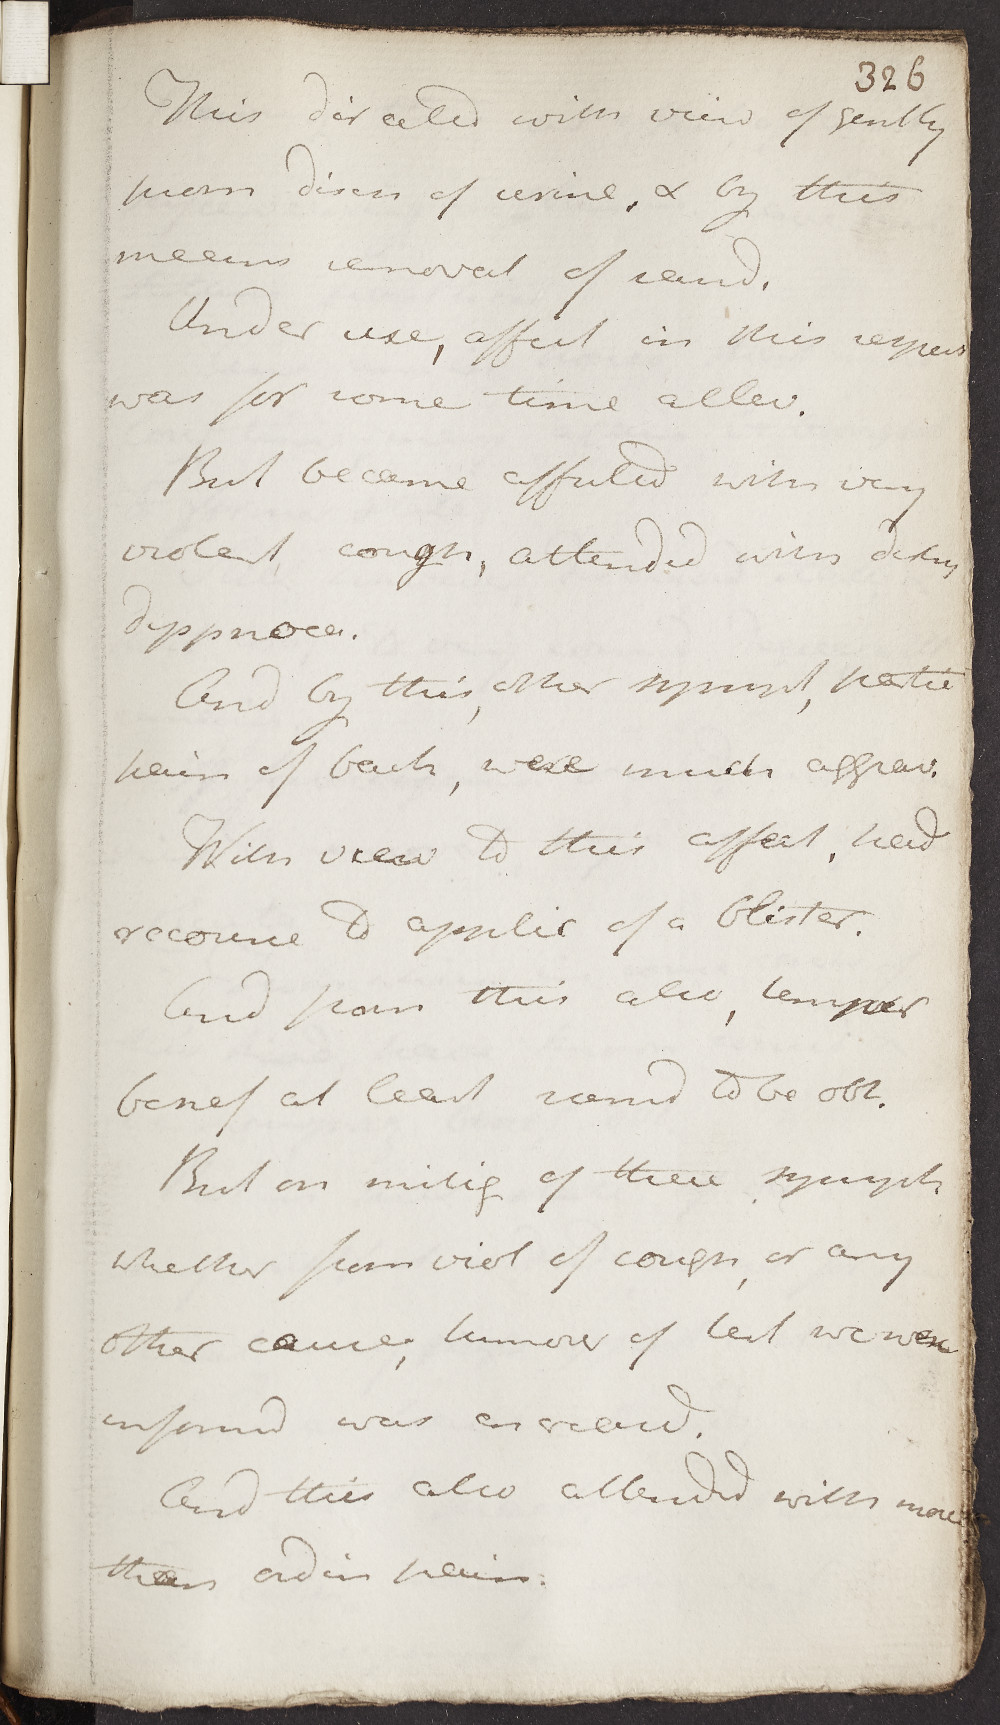 326
This directed with view of gently
prom disch of urine, & by this
means removal of sand.
Under use, affect in this respect
was for some time allev.
But became affected with very
violent cough, attended with
dyspnoea.
And by this, other sympt, partic
pain of back, were much aggrav.
With view to this affect, had
recourse to applic of a blister.
And from this also, tempor
benef at least seemd to be obt.
But on mitig of these sympts
whether from viol of cough, or any
other cause, tumour of test we were
informd was increasd.
And this also attended with more
than ordin pain.